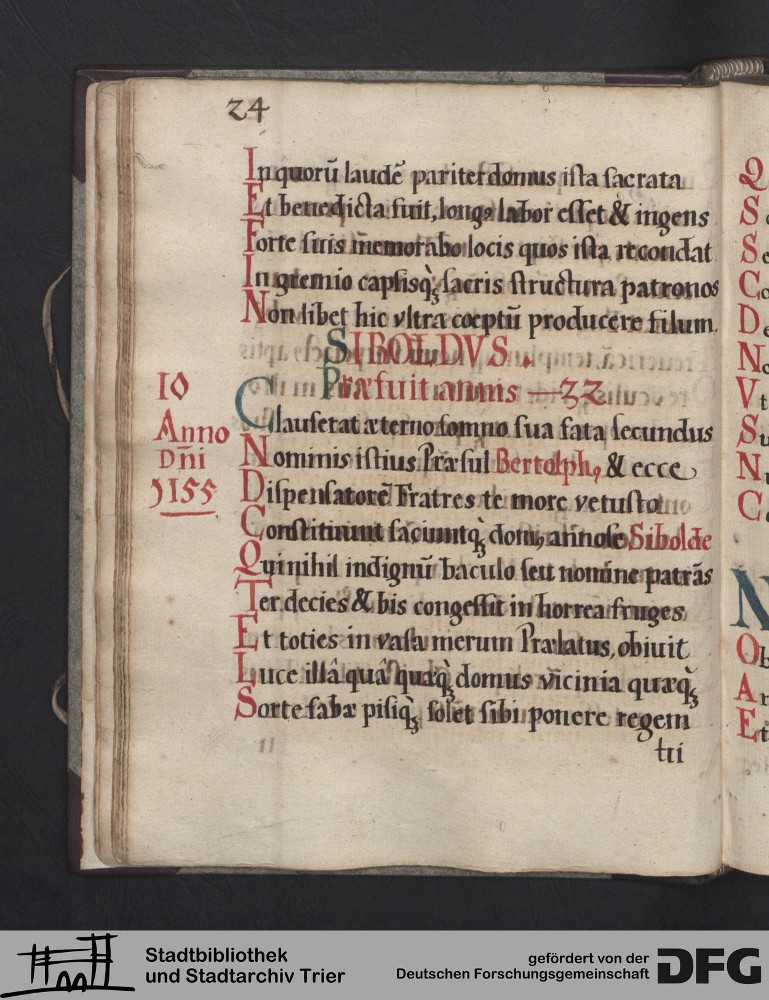 24
In quorũ laudẽ pariter domus ista sacrata
Et benedicta fuit, longꝰ labor esset & ingens
Forte suis memorabo locis quos ista recondat
In gremio capsisq̀ꝫ sacris structura patronos
Non libet hic vltra cœptũ producere filum.
SIBOLDVS.
Præfuit annis — 32
10
Anno
Dñi
1155
Clauserat æterno somno sua fata secundus
Nominis istius Præsul Bertolphꝰ, & ecce
Dispensatorẽ Fratres te more vetusto
Constituunt faciuntq̀ꝫ domꝰ, annose Sibolde
Qui nihil indignũ baculo seu nomine patrãs
Ter decies & bis congessit in horrea fruges
Et toties in vasa merum Prælatus, obiuit
Luce illâ quâ quæq̀ꝫ domus vicinia quæq̀ꝫ
Sorte fabæ pisiq̀ꝫ solet sibi ponere regem
Q
S
S
C
D
N
V
S
N
C
N
O
A
E
Stadtbibliothek
und Stadtarchiv Trier
gefördert von der
Deutschen Forschungsgemeinschaft
DFG